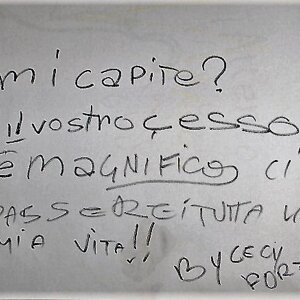 mi capite?
il vostro cesso
è MAGNIFICO, ci
PASSEREI TUTTA
MIA VITA!!
By CECY